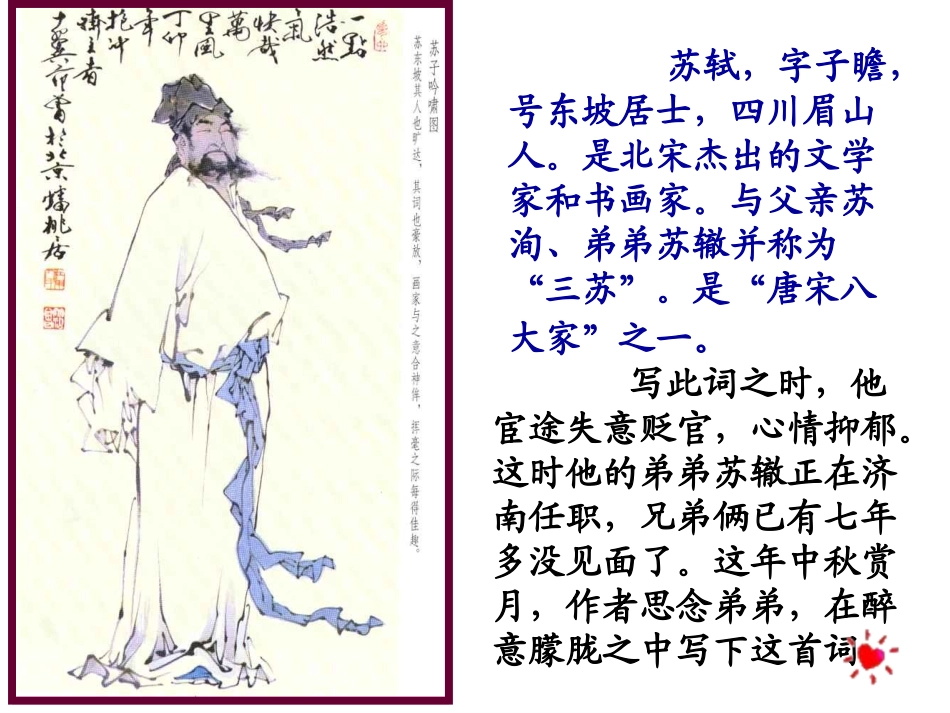 一點
浩然
氣
快哉
萬
里風
丁卯
年
抱冲
齋主者
十翼范曾於北京蟠桃居
苏子吟啸图
苏东坡其人也旷达，其词也豪放，画家与之意合神侔，挥毫之际每得佳趣。
苏轼，字子瞻，
号东坡居士，四川眉山
人。是北宋杰出的文学
家和书画家。与父亲苏
洵、弟弟苏辙并称为
“三苏”。是“唐宋八
大家”之一。
写此词之时，他
宦途失意贬官，心情抑郁。
这时他的弟弟苏辙正在济
南任职，兄弟俩已有七年
多没见面了。这年中秋赏
月，作者思念弟弟，在醉
意朦胧之中写下这首词